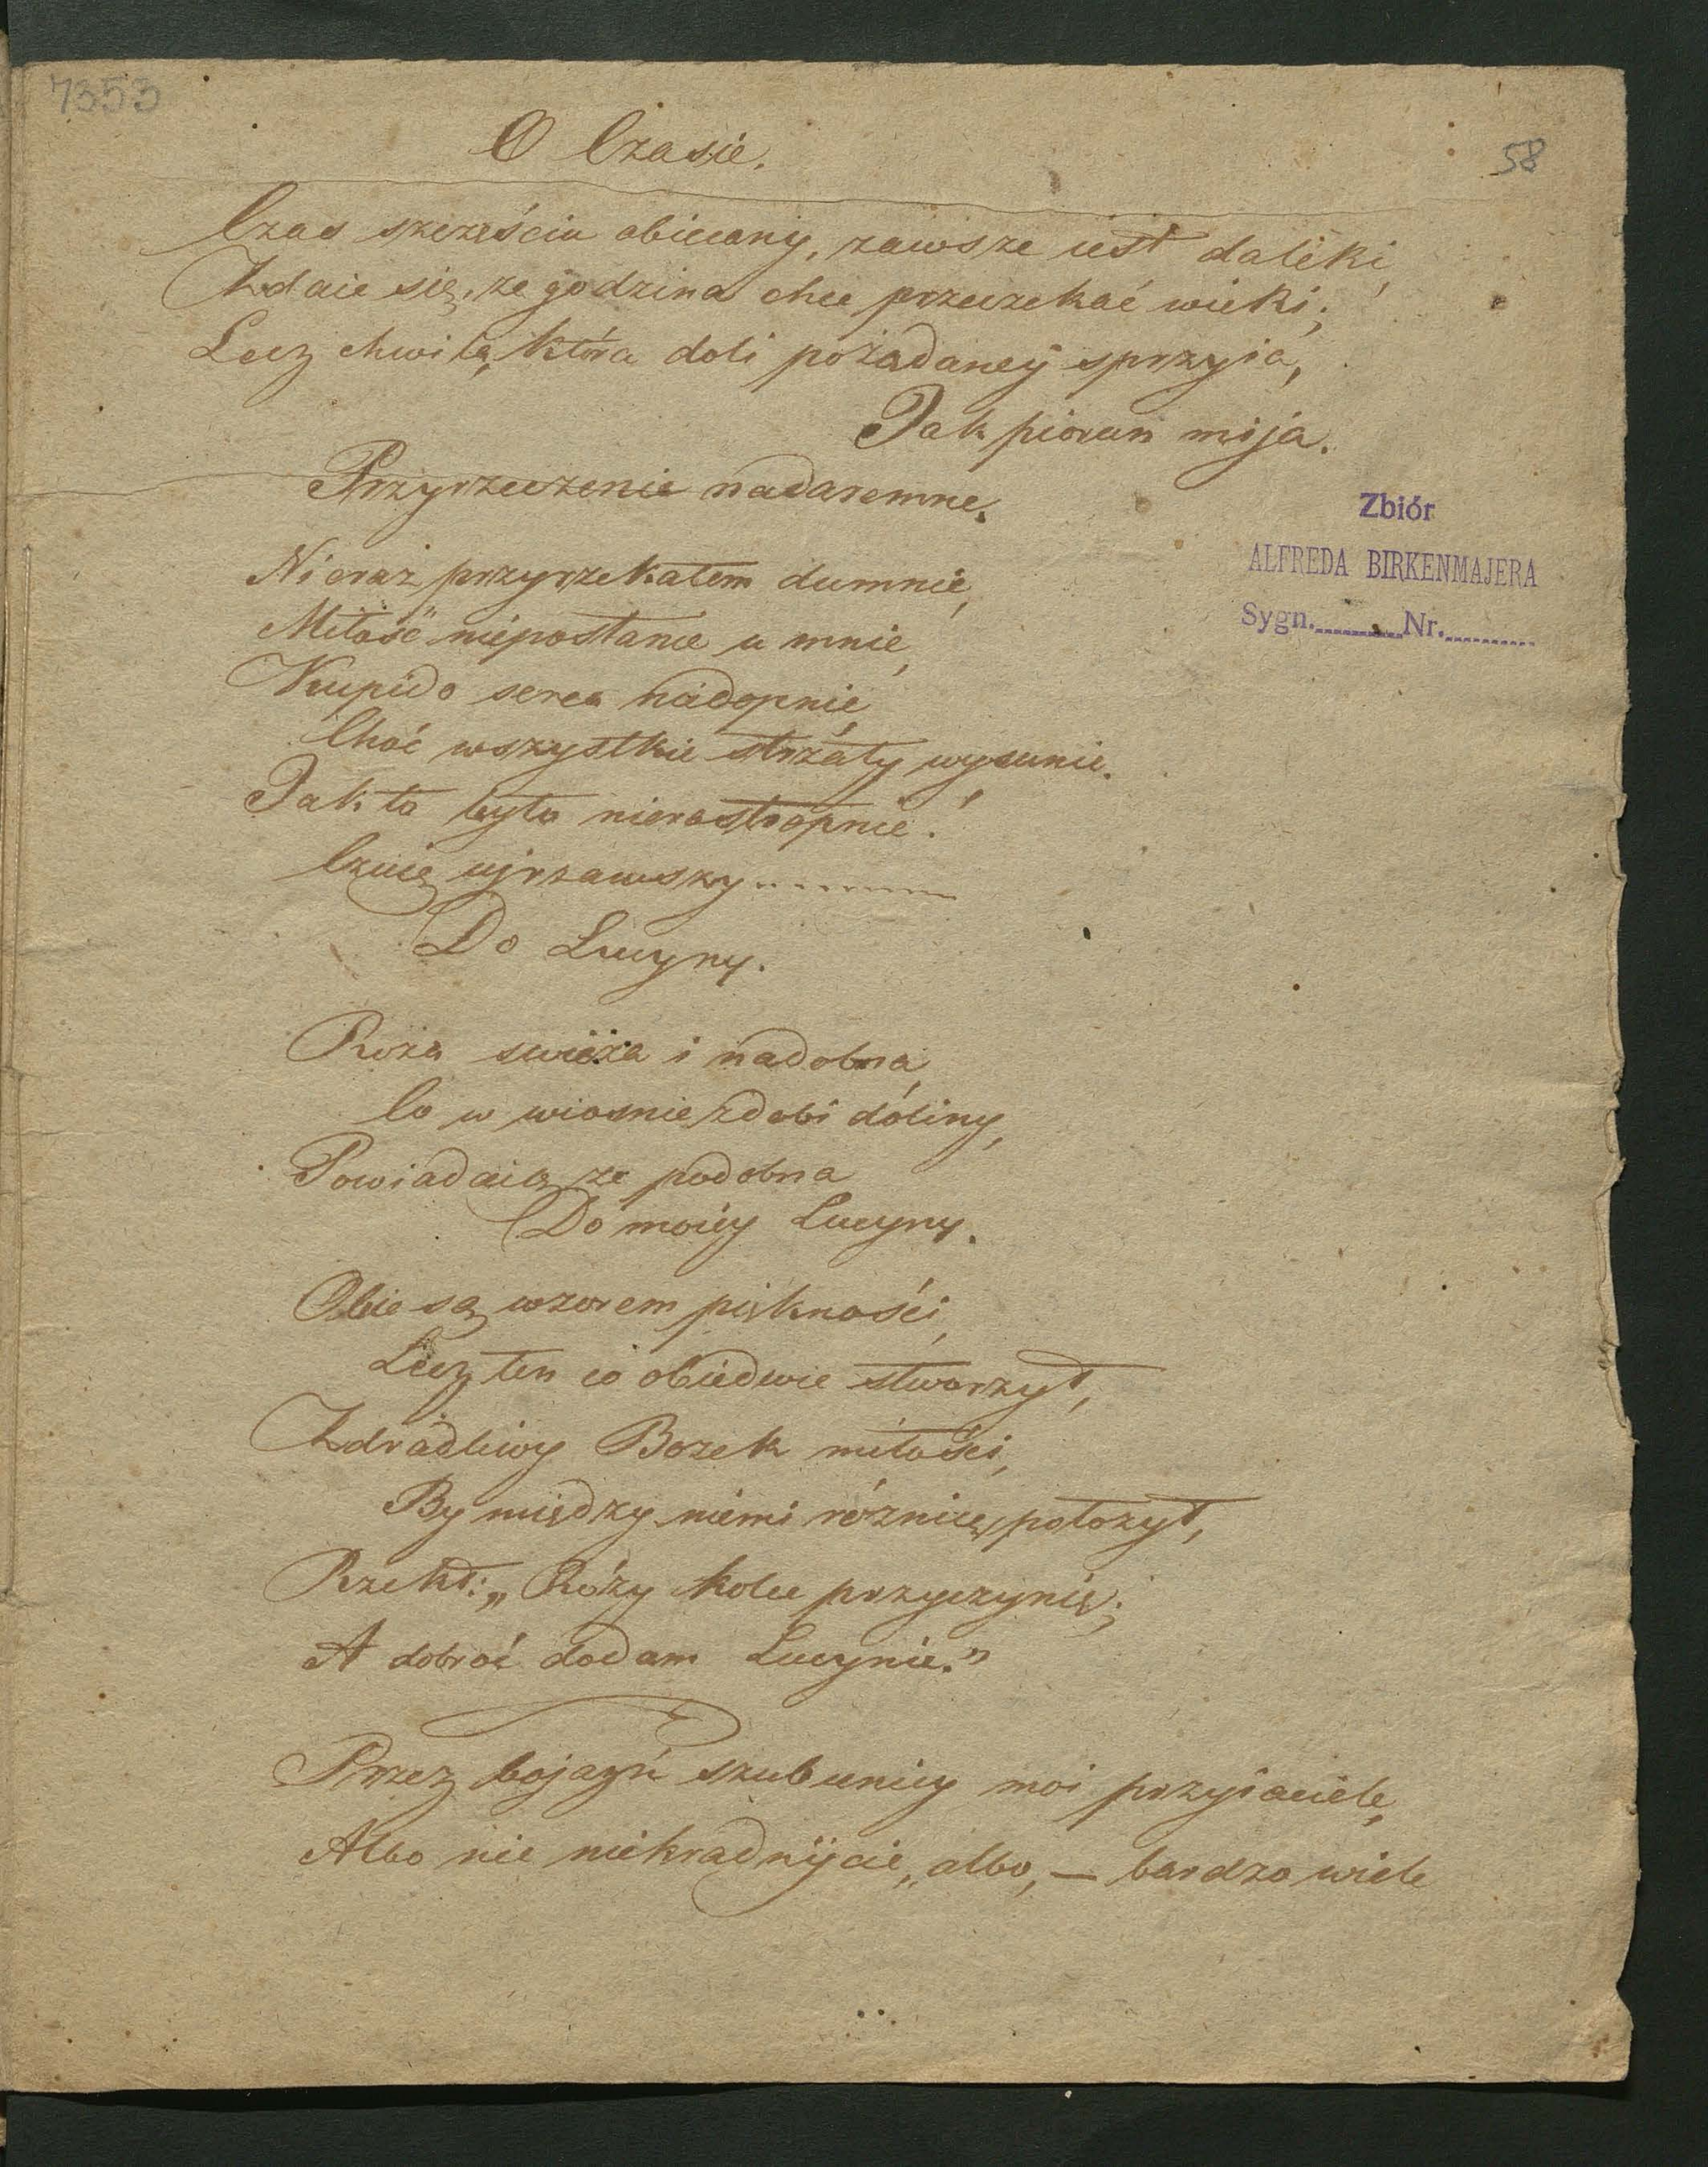 7353
58
O Czasie.
Czas szczęściu obiecany, zawsze iest daleki,
Zdaie się, że godzina chce przeczekać wieki;
Lecz chwila, która doli pożądaney sprzyia,
Jak piorun mija.
Przyrzeczenie nadaremne.
Nieraz przyrzekałem dumnie,
Miłość niepostanie u mnie,
Kupido serca niedopnie,
Choć wszystkie strzały wysunie.
Jak to było nieroztropnie!
Czuię ujrzawszy..........
Do Lucyny.
Roża swieża i nadobna,
Co w wiosnie zdobi doliny,
Powiadaią że podobna
Do moiey Lucyny.
Obie są wzorem piękności,
Lecz ten co obiedwie stworzył,
Zdradliwy Bożek miłości,
By między niemi różnicę położył,
Rzekł: „Róży kolce przyczynię;
A dobroć dodam Lucynie.”
Przez bojaźń szubienicy moi przyiaciele,
Albo nie niekradnijcie, albo, — bardzo wiele
Zbiór
ALFREDA BIRKENMAJERA
Sygn. Nr.